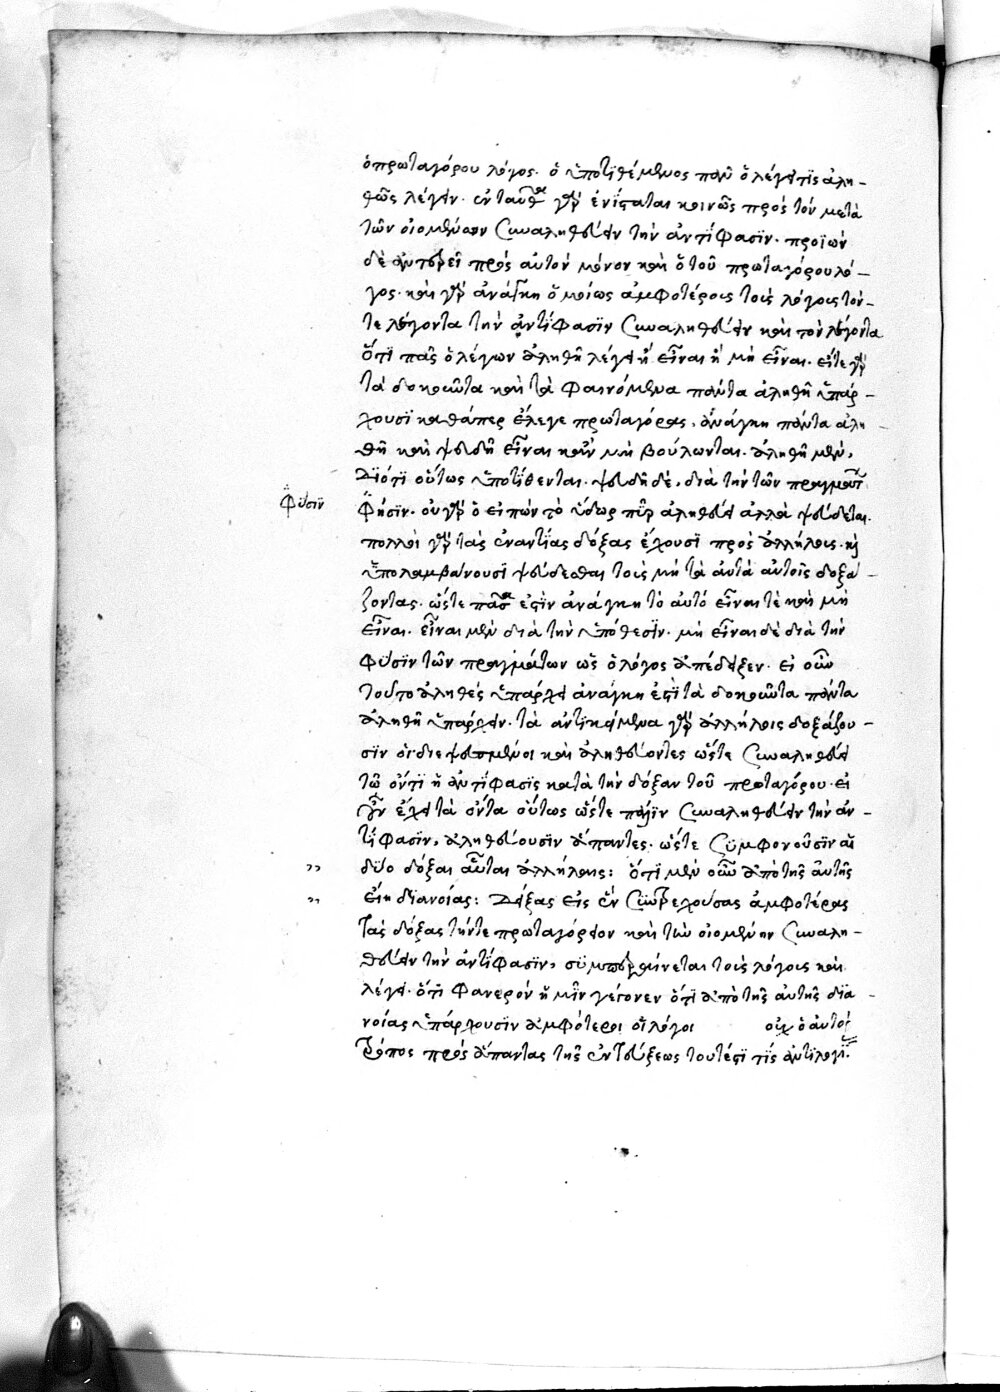 ὁ πρωταγόρου λόγος. ὁ ὑποτιθέμενος πᾶν ὃ λέγει τὶς ἀλη-
θῶς λέγειν. ἐνταῦθα γὰρ ἐνίσταται κοινῶς πρὸς τὸν μετὰ
τῶν οἰομένων συναληθεύειν τὴν ἀντίφασιν. προϊὼν
δὲ ἀντερεῖ πρὸς αὐτὸν μόνον καὶ ὁ τοῦ πρωταγόρου λό-
γος. καὶ γὰρ ἀνάγκη ὁμοίως ἀμφοτέροις τοῖς λόγοις τόν-
τε λέγοντα τὴν ἀντίφασιν συναληθεύειν καὶ τὸν λέγοντα
ὅτι πᾶς ὁ λέγων ἀληθῆ λέγει ἢ εἶναι ἢ μὴ εἶναι. εἴτε γὰρ
τὰ δοκοῦντα καὶ τὰ φαινόμενα πάντα ἀληθῆ ὑπάρ-
χουσι καθάπερ ἔλεγε πρωταγόρας, ἀνάγκη πάντα ἀλη-
θῆ καὶ ψευδῆ εἶναι κἂν μὴ βούλωνται. ἀληθῆ μὲν,
διότι οὕτως ὑποτίθενται. ψευδῆ δὲ, διὰ τὴν τῶν πραγμάτ
φύσιν
φήσιν. οὐ γὰρ ὁ εἰπὼν τὸ ὕδωρ πῦρ ἀληθεύει ἀλλὰ ψεύδεται.
πολλοὶ γὰρ τὰς ἐναντίας δόξας ἔχουσι πρὸς ἀλλήλοις. κὶ
ὑπολαμβάνουσι ψεύδεσθαι τοῖς μὴ τὰ αὐτὰ αὐτοῖς δοξά-
ζοντας. ὥστε πᾶσα ἐστὶν ἀνάγκη τὸ αὐτό εἶναι τὲ καὶ μὴ
εἶναι. εἶναι μὲν διὰ τὴν ὑπόθεσιν. μὴ εἶναι δὲ διὰ τὴν
φύσιν τῶν πραγμάτων ὡς ὁ λόγος ἀπέδειξεν. εἰ οὖν
τοῦτο ἀληθὲς ὑπάρχει ἀνάγκη ἐστὶ τὰ δοκοῦντα πάντα
ἀληθῆ ὑπάρχειν. τὰ ἀντικείμενα γὰρ ἀλλήλοις δοξάζου-
σιν οἱ διεψευσμένοι καὶ ἀληθεύοντες ὥστε συναληθεύει
τῷ ὄντι ἡ ἀντίφασις κατὰ τὴν δόξαν τοῦ πρωταγόρου. εἰ
γοῦν ἔχει τὰ ὄντα οὕτως ὥστε συναληθεύειν τὴν ἀν-
τίφασιν, ἀληθεύουσιν ἅπαντες. ὥστε συμφονοῦσιν αἱ
δύο δόξαι αὗται ἀλλήλαις: ὅτι μὲν οὖν ἀπὸ τῆς αὐτῆς
εἰη διανοίας: Δείξας εἰς ἓν συντρεχούσας ἀμφοτέρας
τὰς δόξας τήντε πρωταγόρειον καὶ τῶν οἰομένην συναλη-
θεύειν τὴν ἀντίφασιν, συμπεραίνεται τοῖς λόγοις καὶ
λέγει. ὅτι φανερόν ἡμῖν γέγονεν ὅτι ἀπὸ τῆς αὐτῆς δια-
νοίας ὑπάρχουσιν ἀμφότεροι οἱ λόγοι οὐχ ὁ αὐτος
τρόπος πρὸς ἅπαντας τῆς ἐντεύξεως τουτέστι τῆς ἀντιλογί